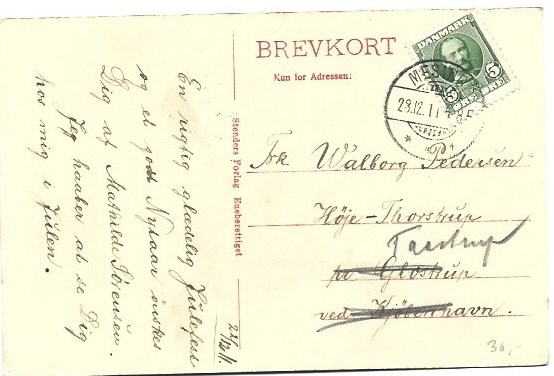 En rigtig glædelig Julefest
og et godt Nytaar ønskes
Dig af Mathilde Sørensen.
Jeg haaber at se Dig
hos mig i Julen.
22/12 11
Stenders Forlag Eneberettiget
BREVKORT
Kun for Adressen:
DANMARK
5
23.12.11
Frk. Walborg Pedersen
Høje-Thorstrup
Taastrup
pr. Glostrup
ved Kjøbenhavn.
30,-